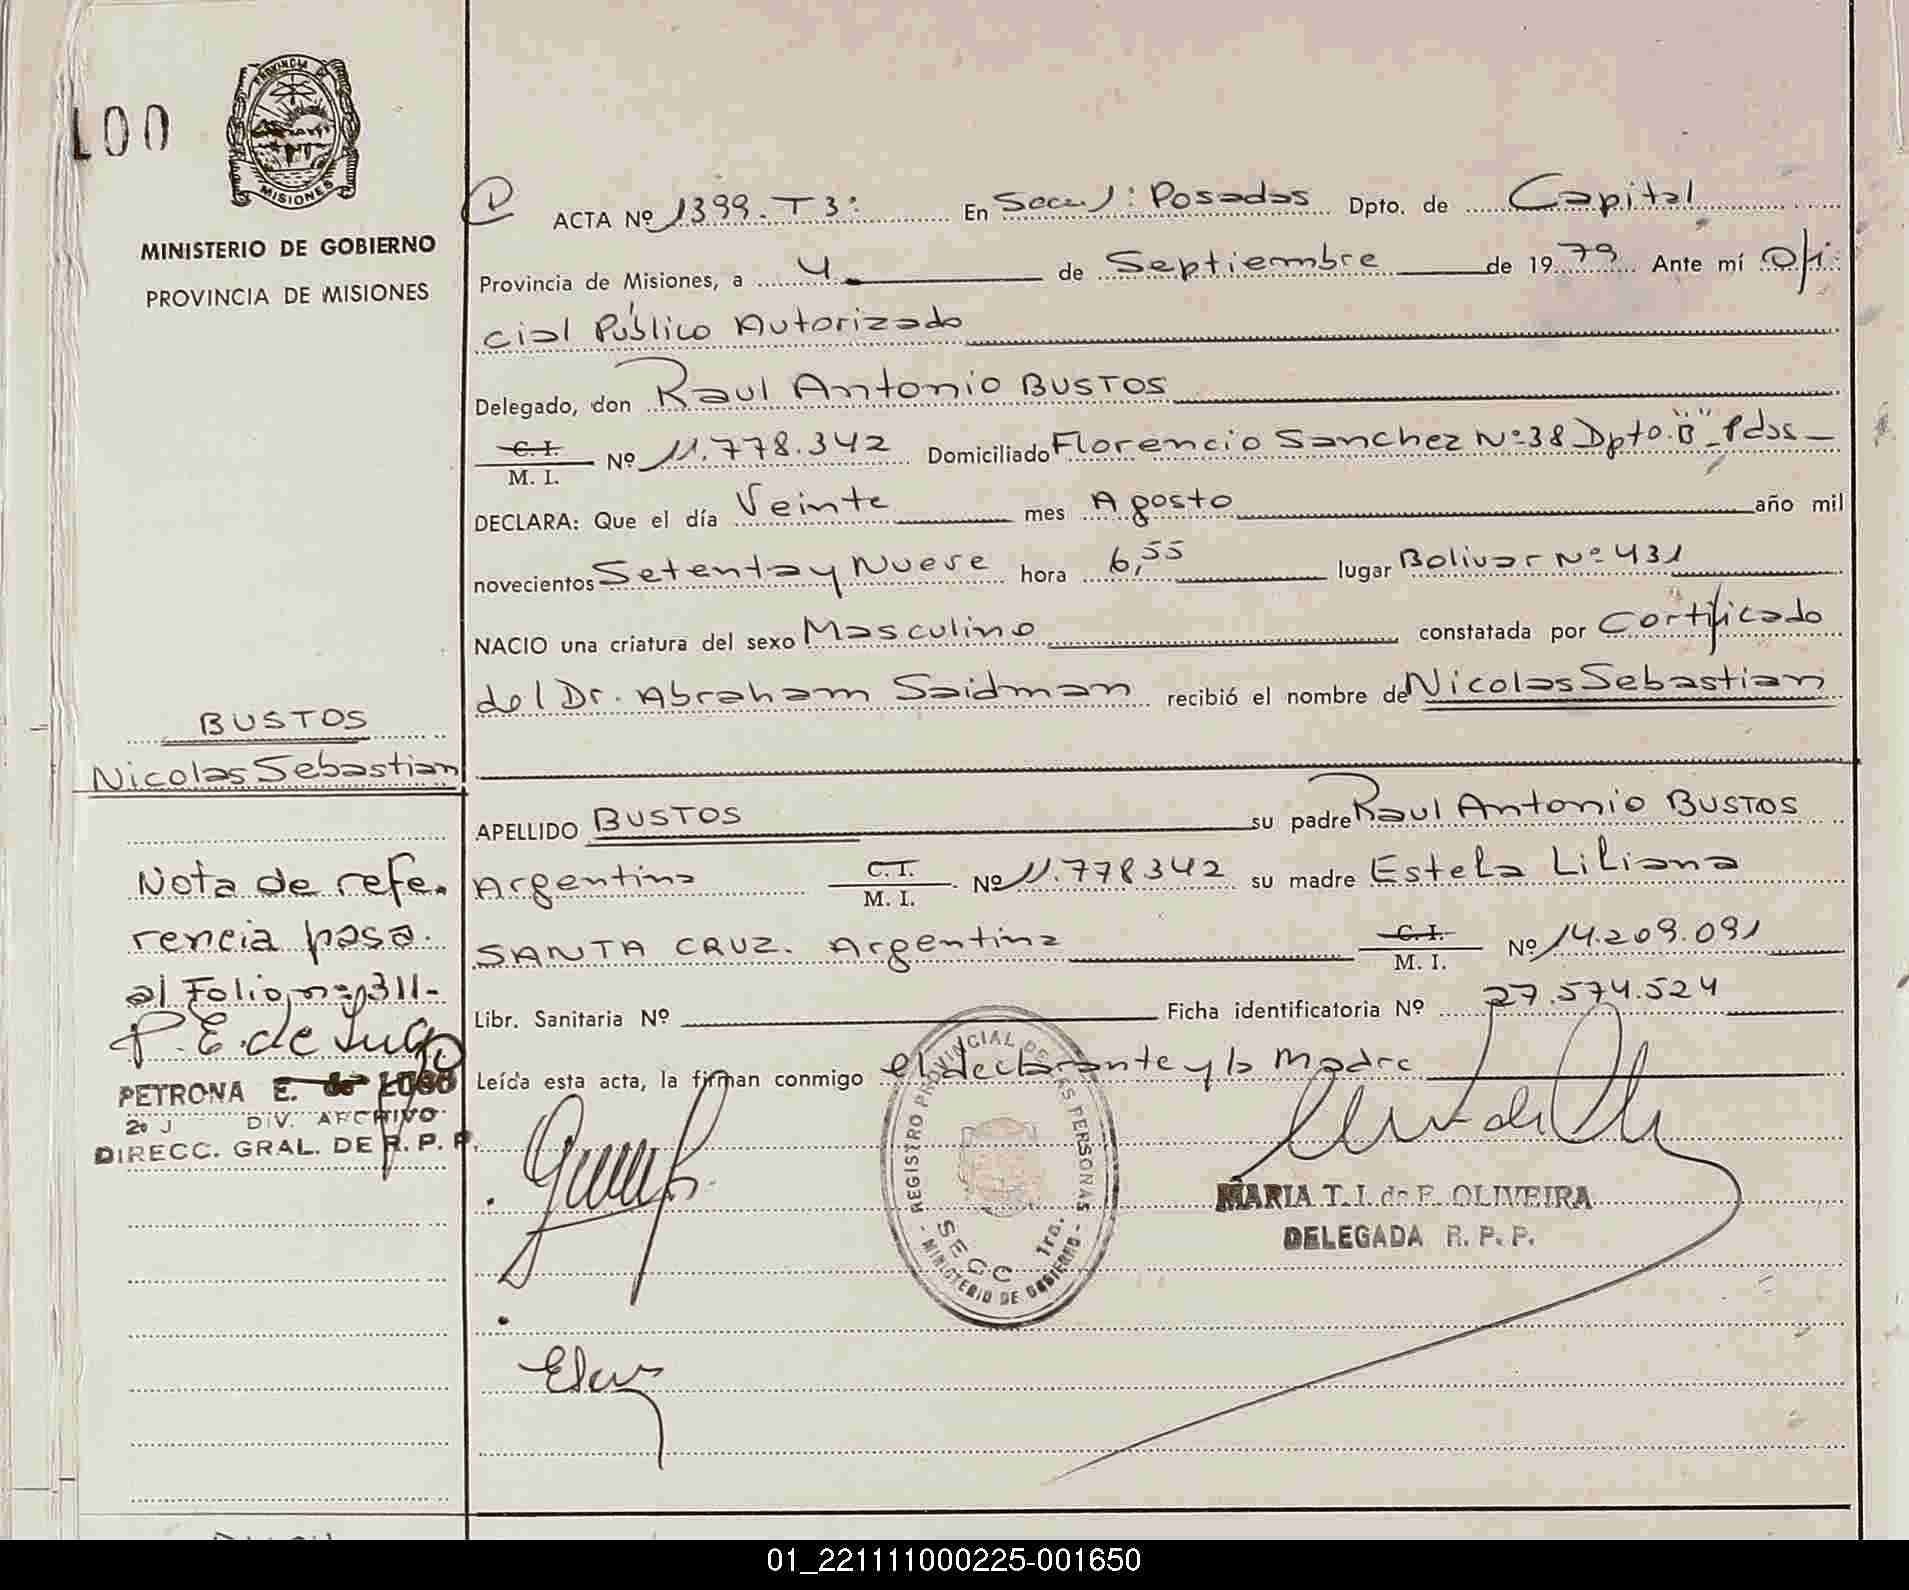 100
PROVINCIA DE
MISIONES
MINISTERIO DE GOBIERNO
PROVINCIA DE MISIONES
ACTA Nº 1399. T3: En Secc. 1: Posadas Dpto. de Capital
Provincia de Misiones, a 4 de Septiembre de 1979 Ante mí Ofi
cial Público Autorizado
Delegado, don Raul Antonio BUSTOS
C. I.
M. I. Nº 11.778.342 Domiciliado Florencio Sanchez Nº 38 Dpto. "B" Pdas
DECLARA: Que el día Veinte mes Agosto año mil
novecientos Setenta y Nueve hora 6,55 lugar Bolivar Nº 431
NACIO una criatura del sexo Masculino constatada por Certificado
del Dr. Abraham Saidman recibió el nombre de Nicolas Sebastian
BUSTOS
Nicolas Sebastian
APELLIDO BUSTOS su padre Raul Antonio BUSTOS
Argentina C.I. M. I. Nº 11.778342 su madre Estela Liliana
SANTA CRUZ. Argentina C.I. M. I. Nº 14.209.091
Libr. Sanitaria Nº Ficha identificatoria Nº 27.574.524
Leída esta acta, la firman conmigo el declarante y la Madre
Nota de refe.
rencia pasa.
al Folio nº 311-
P. E. de Lugo
PETRONA E. de LUGO
DIV. ARCHIVO
DIRECC. GRAL. DE R. P. P.
REGISTRO PROVINCIAL DE LAS PERSONAS
SECC 1ra.
- MINISTERIO DE GOBIERNO -
MARIA T. I. de F. OLIVEIRA
DELEGADA R. P. P.
01_221111000225-001650